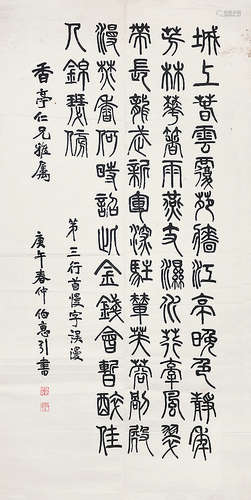 城上春雲覆苑牆江亭晚色靜年
芳林華箸雨燕支濕水荇牽風翠
帶長龍武新軍深駐輦芙蓉別殿
漫焚香何時詔此金錢會暫醉佳
人錦瑟傍
第三行首慢字誤漫
香亭仁兄雅屬
庚午春仲伯惠引書